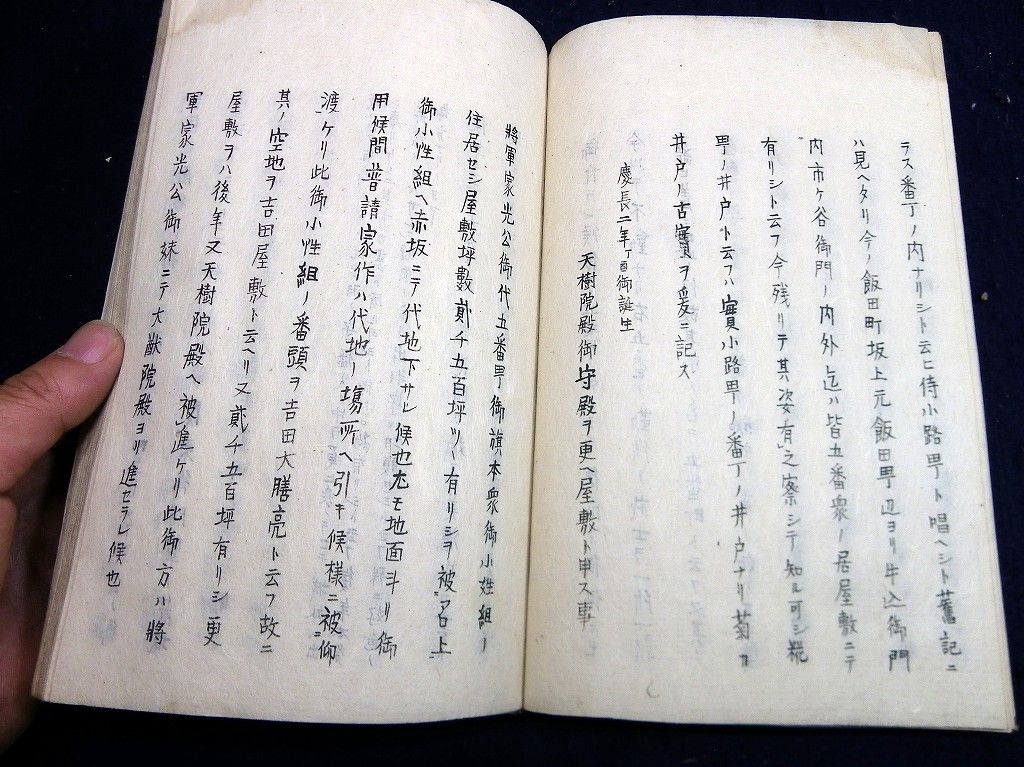 ラス番丁ノ内ナリシト云ヒ侍小路甼ト唱ヘシト舊記ニ
ハ見ヘタリ今ノ飯田町坂上元飯田甼辺ヨリ牛込御門
内市ケ谷御門ノ内外迄ハ皆五番衆ノ居屋敷ニテ
有リシト云フ今残リテ其姿有之察シテ知ル可シ糀
甼ノ井戸ト云フハ實小路甼ノ番丁ノ井戸ナリ菊カ
井戸ノ古實ヲ爰ニ記ス
慶長二年丁酉御誕生
天樹院殿御守殿ヲ更ヘ屋敷ト申ス事
將軍家光公御代五番甼御旗本衆御小姓組ノ
住居セシ屋敷坪數貳千五百坪ツヽ有リシヲ被召上
御小性組ヘ赤坂ニテ代地下サレ候也尤モ地面斗リ御
用候間普請家作ハ代地ノ場所ヘ引キ候様ニ被仰
渡ケリ此御小性組ノ番頭ヲ吉田大膳亮ト云フ故ニ
其ノ空地ヲ吉田屋敷ト云ヘリ又貳千五百坪有リシ更
屋敷ヲハ後年又天樹院殿ヘ被進ケリ此御方ハ將
軍家光公御妹ニテ大猷院殿ヨリ進セラレ候也